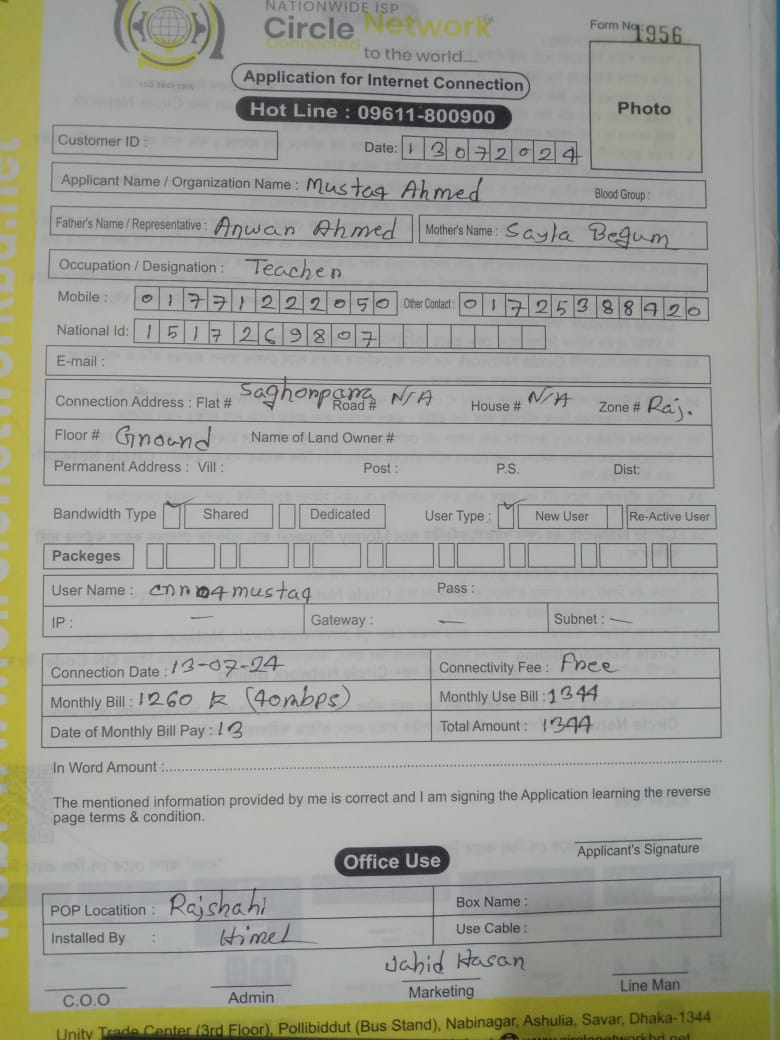 NATIONWIDE ISP
Circle Network
Connected to the world.....
ISO 9001:2015
Form No 1956
Application for Internet Connection
Hot Line : 09611-800900
Photo
Customer ID :
Date: 13072024
Applicant Name / Organization Name : Mustaq Ahmed Blood Group :
Father's Name / Representative : Anwar Ahmed Mother's Name : Sayla Begum
Occupation / Designation : Teacher
Mobile : 01771222050 Other Contact : 01725388920
National Id: 1517269807
E-mail :
Connection Address : Flat # Saghonpara Road # N/A House # N/A Zone # Raj.
Floor # Ground Name of Land Owner #
Permanent Address : Vill : Post : P.S. Dist:
Bandwidth Type Shared Dedicated User Type : New User Re-Active User
Packeges
User Name : cnn04mustaq Pass :
IP : — Gateway : — Subnet : —
Connection Date : 13-07-24 Connectivity Fee : Free
Monthly Bill : 1260 k (40mbps) Monthly Use Bill : 1344
Date of Monthly Bill Pay : 13 Total Amount : 1344
In Word Amount :
The mentioned information provided by me is correct and I am signing the Application learning the reverse
page terms & condition.
Applicant's Signature
Office Use
POP Locatition : Rajshahi Box Name :
Installed By : Himel Use Cable :
Jahid Hasan
C.O.O Admin Marketing Line Man
Unity Trade Center (3rd Floor), Pollibiddut (Bus Stand), Nabinagar, Ashulia, Savar, Dhaka-1344